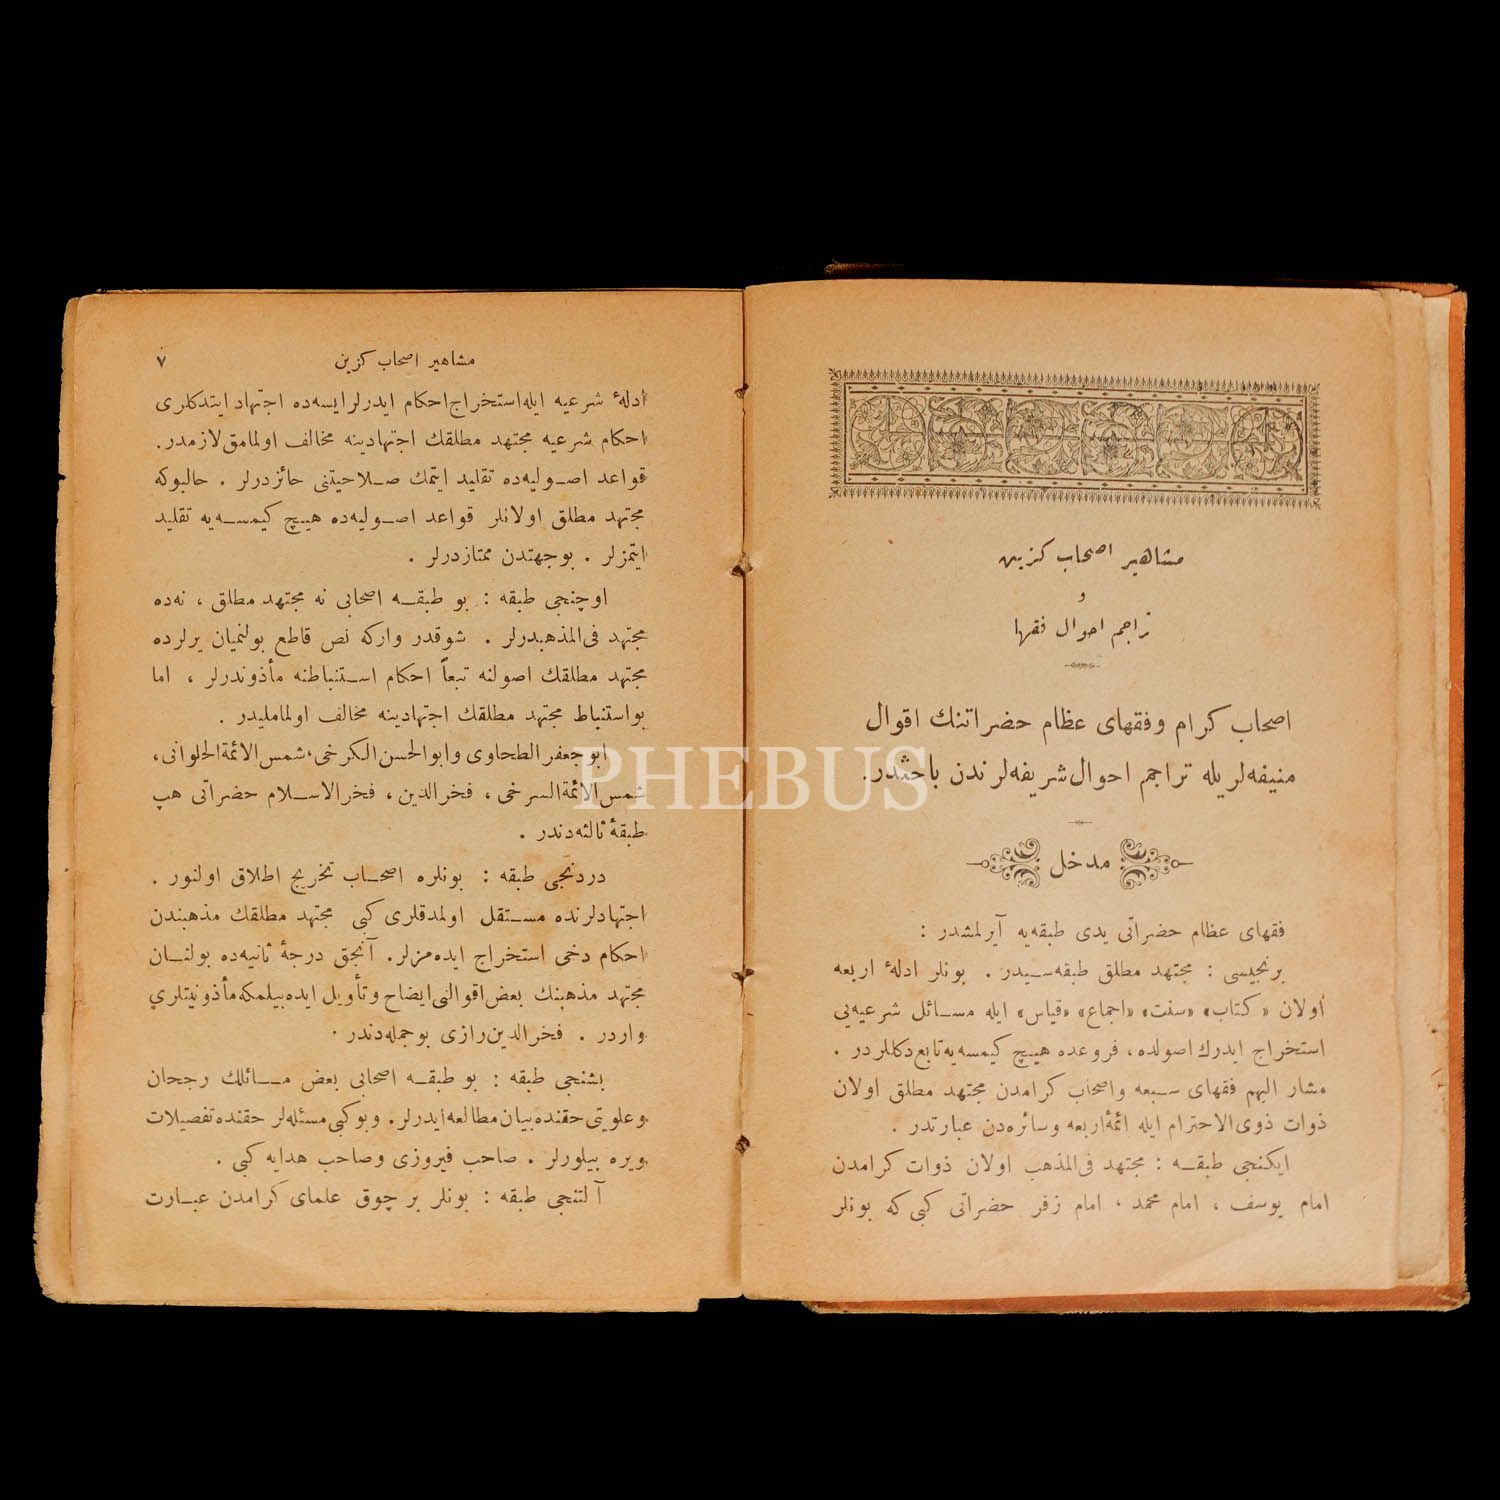 مشاهیر اصحاب كزین
و
تراجم احوال فقها
اصحاب كرام وفقهای عظام حضراتنك اقوال
منیفه‌لریله تراجم احوال شریفه‌لرندن باحثدر.
مدخل
فقهای عظام حضراتی یدی طبقه‌یه آیرلمشدر :
برنجیسی : مجتهد مطلق طبقه‌سیدر . بونلر ادلهٔ اربعه
اولان «كتاب» «سنت» «اجماع» «قیاس» ایله مسائل شرعیه‌یی
استخراج ایدرك اصولده، فروعده هیچ كیمسه‌یه تابع دكللردر .
مشار الیهم فقهای سبعه واصحاب كرامدن مجتهد مطلق اولان
ذوات ذوی‌الاحترام ایله ائمهٔ اربعه وسائره‌دن عبارتدر .
ایكنجی طبقه : مجتهد فی‌المذهب اولان ذوات كرامدن
امام یوسف ، امام محمد ، امام زفر حضراتی كبی كه بونلر
مشاهیر اصحاب كزین ٧
ادلهٔ شرعیه ایله استخراج احكام ایدرلر ایسه‌ده اجتهاد ایتدكلری
احكام شرعیه مجتهد مطلقك اجتهادینه مخالف اولمامق لازمدر.
قواعد اصولیه‌ده تقلید ایتمك صلاحیتنی حائزدرلر . حالبوكه
مجتهد مطلق اولانلر قواعد اصولیه‌ده هیچ كیمسه‌یه تقلید
ایتمزلر . بوجهتدن ممتازدرلر .
اوچنجی طبقه : بو طبقه اصحابی نه مجتهد مطلق ، نه‌ده
مجتهد فی‌المذهبدرلر . شوقدر واركه نص قاطع بولنمیان یرلرده
مجتهد مطلقك اصولنه تبعاً احكام استنباطنه مأذوندرلر ، اما
بواستنباط مجتهد مطلقك اجتهادینه مخالف اولمامليدر .
ابوجعفر الطحاوی وابوالحسن الكرخی، شمس‌الائمة الحلوانی،
شمس‌الائمة السرخی ، فخرالدین ، فخرالاسلام حضراتی هپ
طبقهٔ ثالثه‌دندر .
دردنجی طبقه : بونلره اصحاب تخریج اطلاق اولنور .
اجتهادلرنده مستقل اولمدقلری كبی مجتهد مطلقك مذهبندن
احكام دخی استخراج ایده‌مزلر. آنجق درجهٔ ثانیه‌ده بولنان
مجتهد مذهبنك بعض اقوالنی ایضاح وتأویل ایده‌بیلمكه مأذونیتلری
واردر . فخرالدین رازی بوجمله‌دندر .
بشنجی طبقه : بو طبقه اصحابی بعض مسائلك رجحان
وعلویتی حقنده بیان مطالعه ایدرلر. وبوكبی مسئله‌لر حقنده تفصیلات
ویره بیلورلر . صاحب فیروزی وصاحب هدایه كبی .
آلتنجی طبقه : بونلر برچوق علمای كرامدن عبارت
PHEBUS